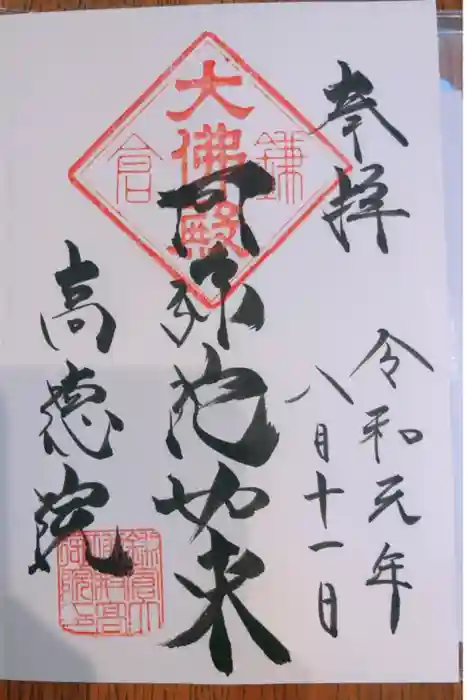 奉拝
令和元年
八月十一日
鎌倉
大佛殿
阿弥陀如来
高徳院